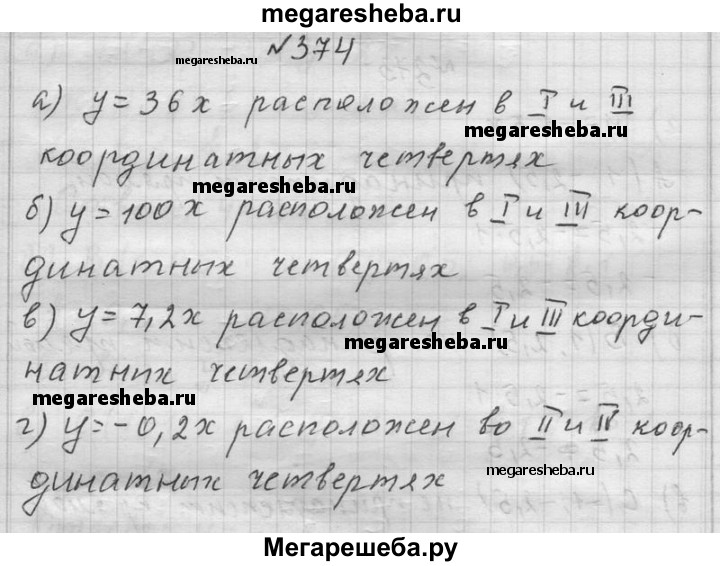 megaresheba.ru
№374
megaresheba.ru
а) y=36x расположен в I и III
megaresheba.ru
координатных четвертях
megaresheba.ru
б) y=100x расположен в I и III коор-
динатных четвертях
в) y=7,2x расположен в I и III коорди-
megaresheba.ru
натних четвертях
megaresheba.ru
г) y=-0,2x расположен во II и IV коор-
megaresheba.ru
динатных четвертях
Мегарешеба.ру